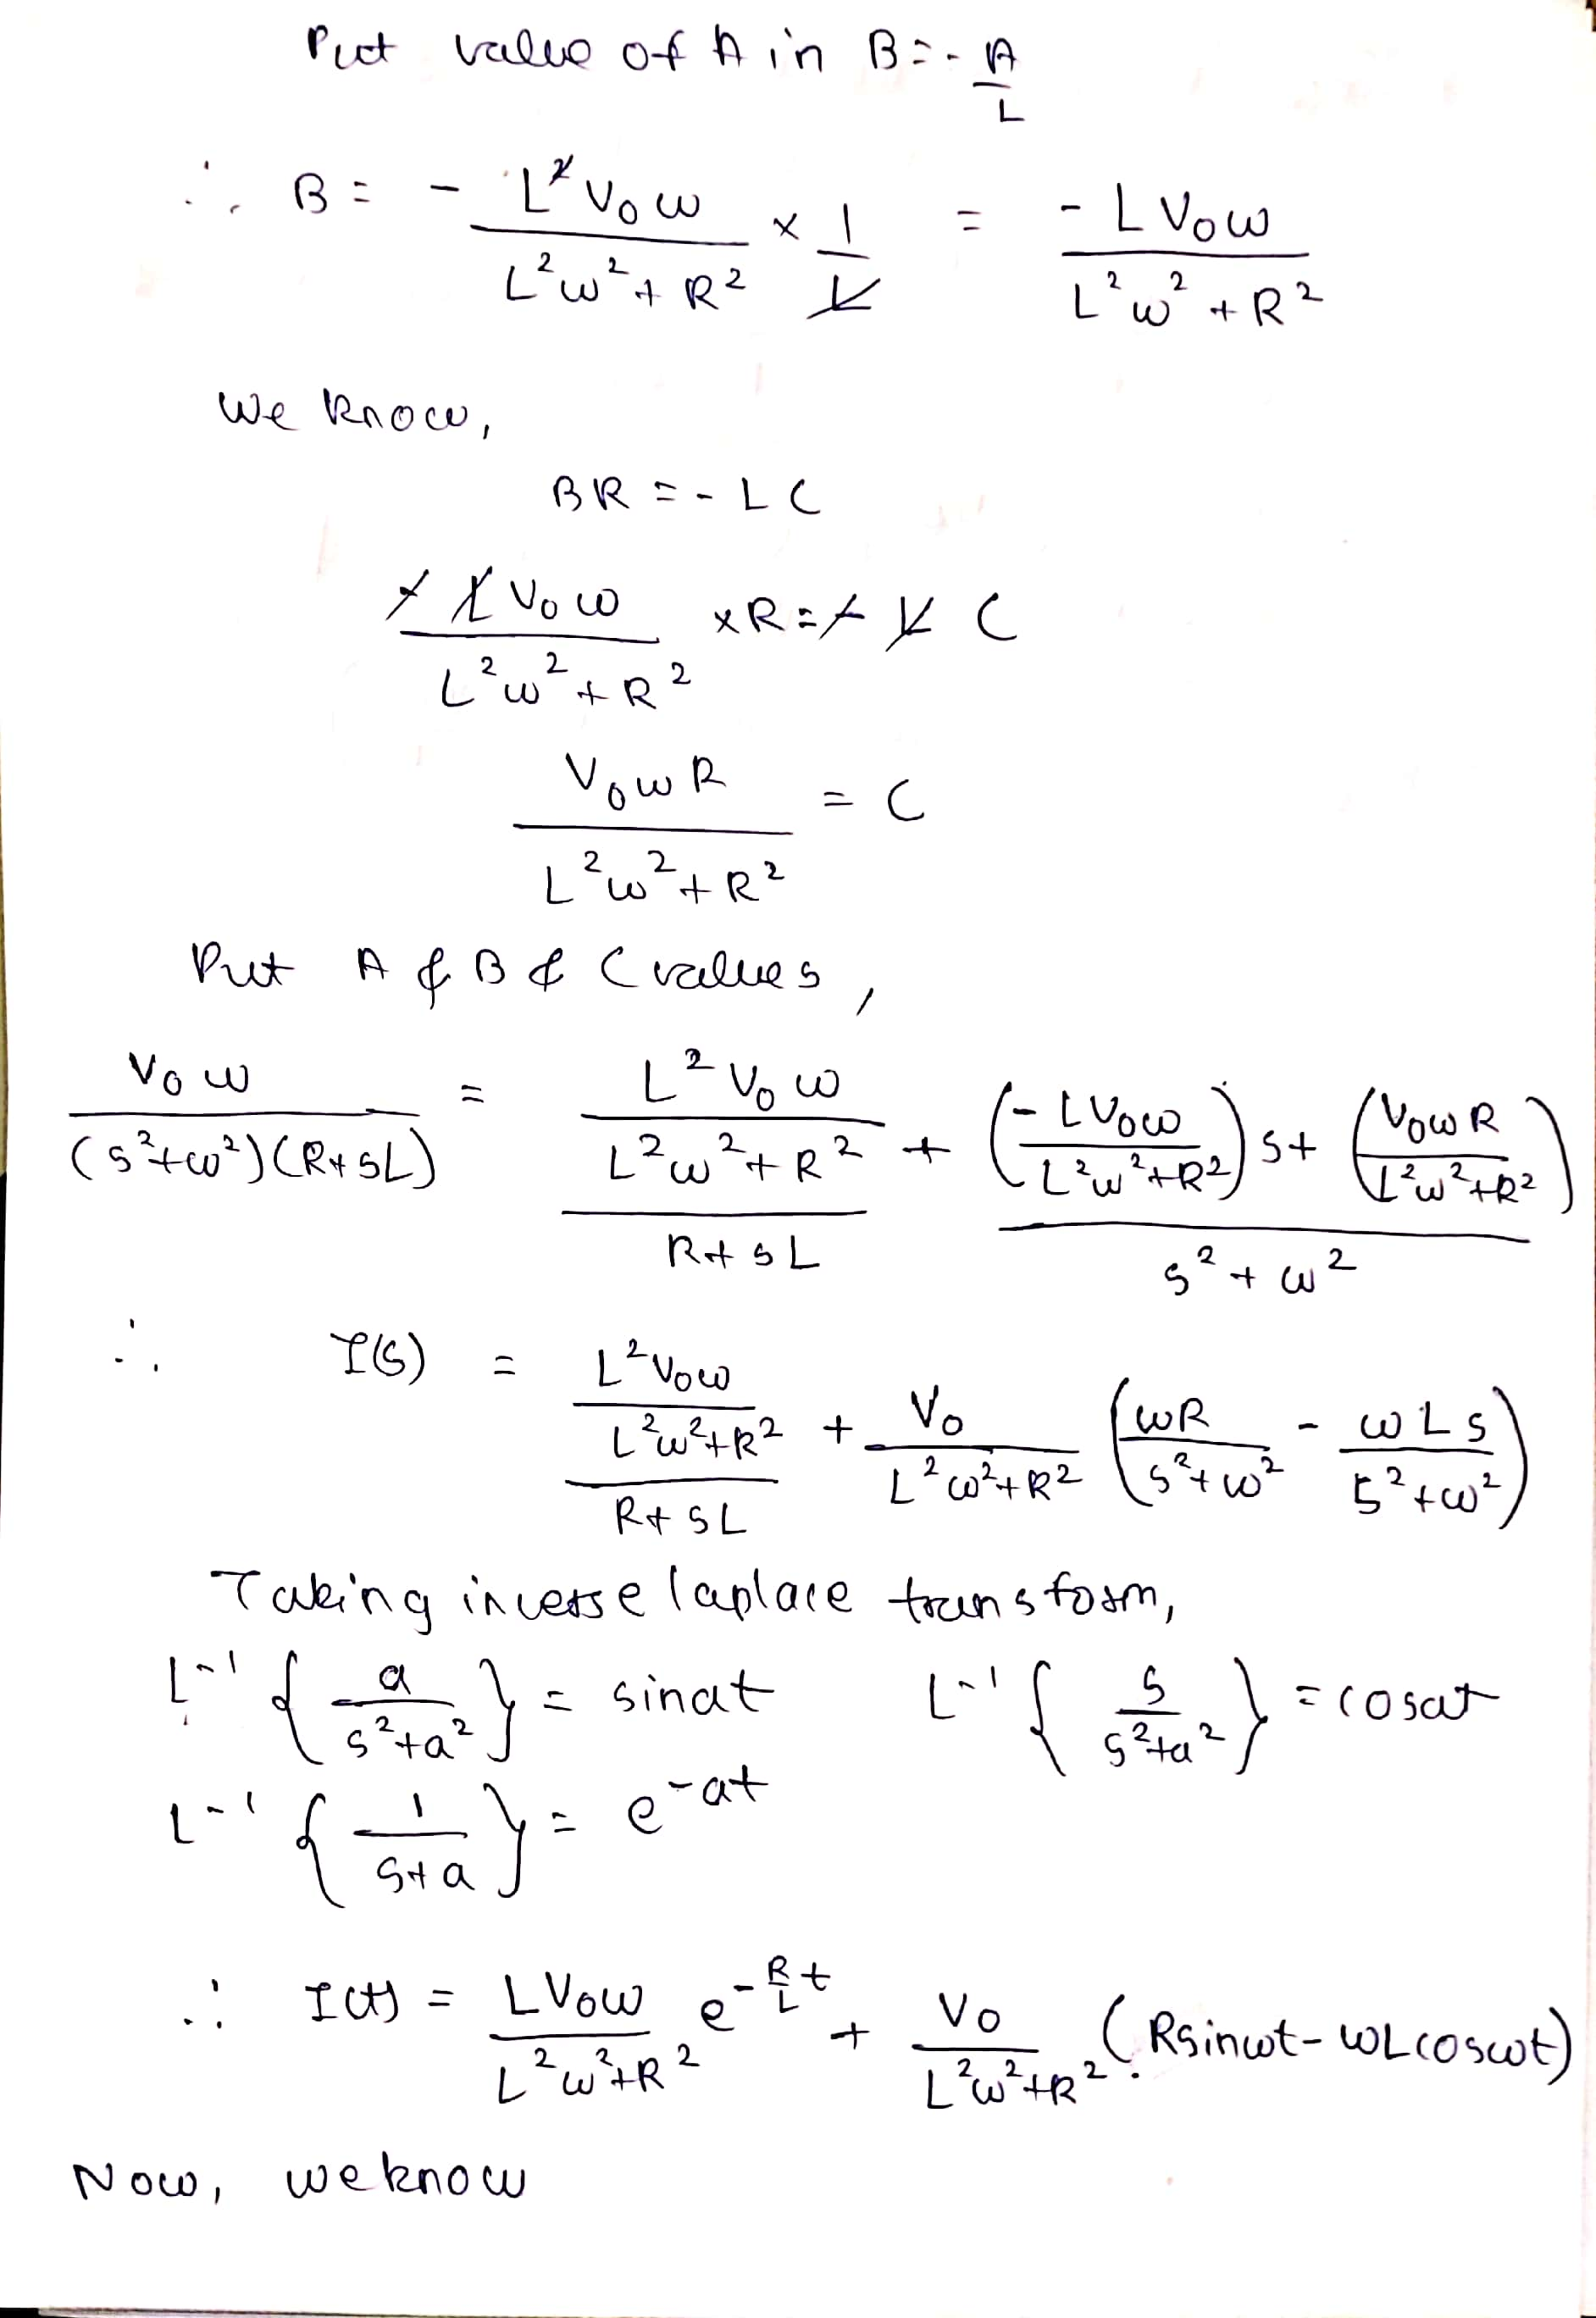 Put value of A in B = - A/L
∴ B = - L²V₀ω/(L²ω²+R²) × 1/L = - LV₀ω/(L²ω²+R²)
We know,
BR = - LC
- LV₀ω/(L²ω²+R²) × R = - L C
V₀ωR/(L²ω²+R²) = C
Put A & B & C values,
V₀ω/((s²+ω²)(R+sL)) = (L²V₀ω/(L²ω²+R²))/(R+sL) + ((-LV₀ω/(L²ω²+R²))s + (V₀ωR/(L²ω²+R²)))/(s²+ω²)
∴ I(s) = (L²V₀ω/(L²ω²+R²))/(R+sL) + V₀/(L²ω²+R²) (ωR/(s²+ω²) - ωLs/(s²+ω²))
Taking inverse laplace transform,
L⁻¹{a/(s²+a²)} = sinat L⁻¹{s/(s²+a²)} = cosat
L⁻¹{1/(s+a)} = e^(-at)
∴ I(t) = LV₀ω/(L²ω²+R²) e^(-R/L t) + V₀/(L²ω²+R²) (Rsinωt - ωLcosωt)
Now, we know